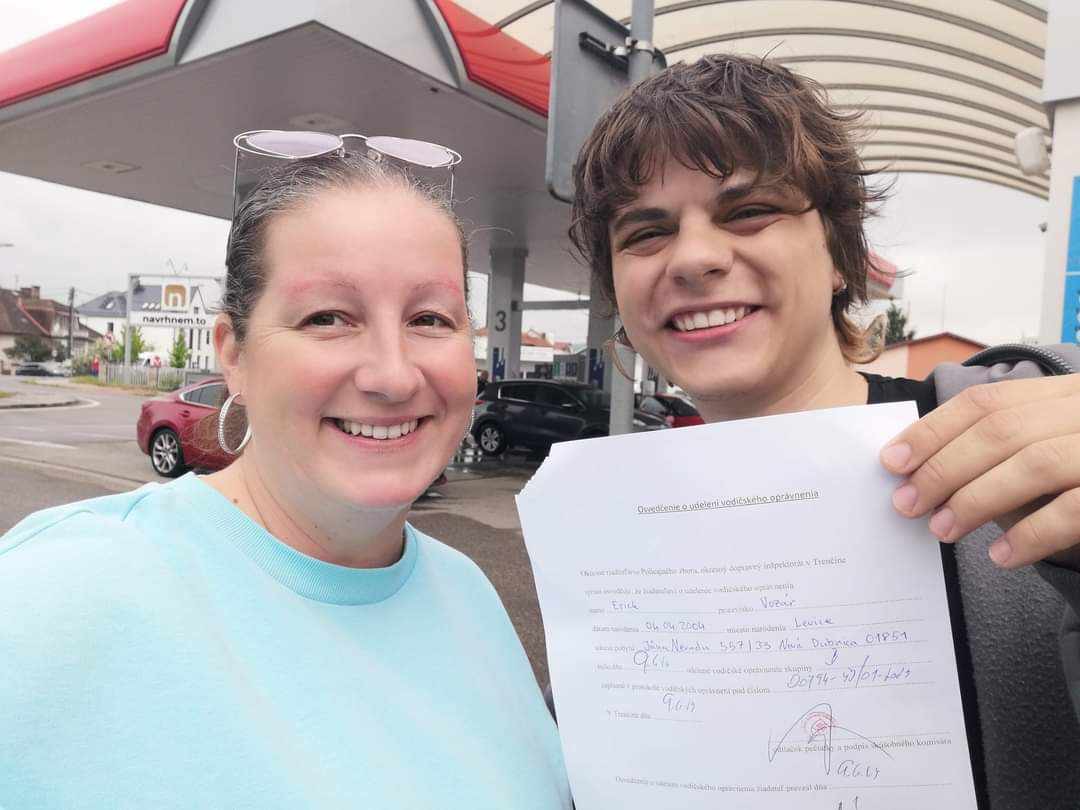 navrhnem.to
3
Osvedčenie o udelení vodičského oprávnenia
Okresné riaditeľstvo Policajného zboru, okresný dopravný inšpektorát v Trenčíne
týmto osvedčuje, že žiadateľovi o udelenie vodičského oprávnenia
meno Erich priezvisko Vozár
dátum narodenia 04.04.2004 miesto narodenia Levice
adresa pobytu 557/33 Nová Dubnica 01851
bolo dňa udelené vodičské oprávnenie skupiny B
zapísané v protokole vodičských oprávnení pod číslom
V Trenčíne dňa
odtlačok pečiatky a podpis skúšobného komisára
Osvedčenie o udelení vodičského oprávnenia žiadateľ prevzal dňa